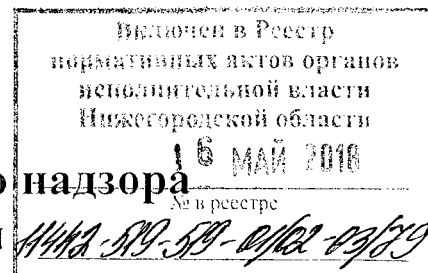 Включен в Реестр
нормативных актов органов
исполнительной власти
Нижегородской области
16 МАЙ 2018
надзора
№ в реестре
11442-519-519-01/02-03/79